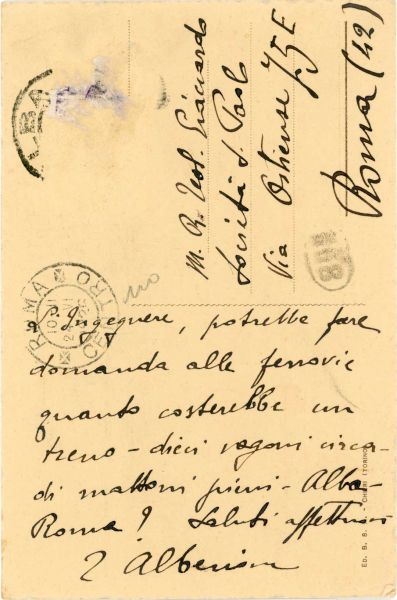 M. R. Teol. Giaccardo
Società S. Paolo
Via Ostiense 75 E
Roma (42)
ROMA CENTRO
818
Ingegnere, potrebbe fare
domanda alle ferrovie
quanto costerebbe un
treno - dieci vagoni circa -
di mattoni pieni - Alba -
Roma? Saluti affettuosi
Alberione